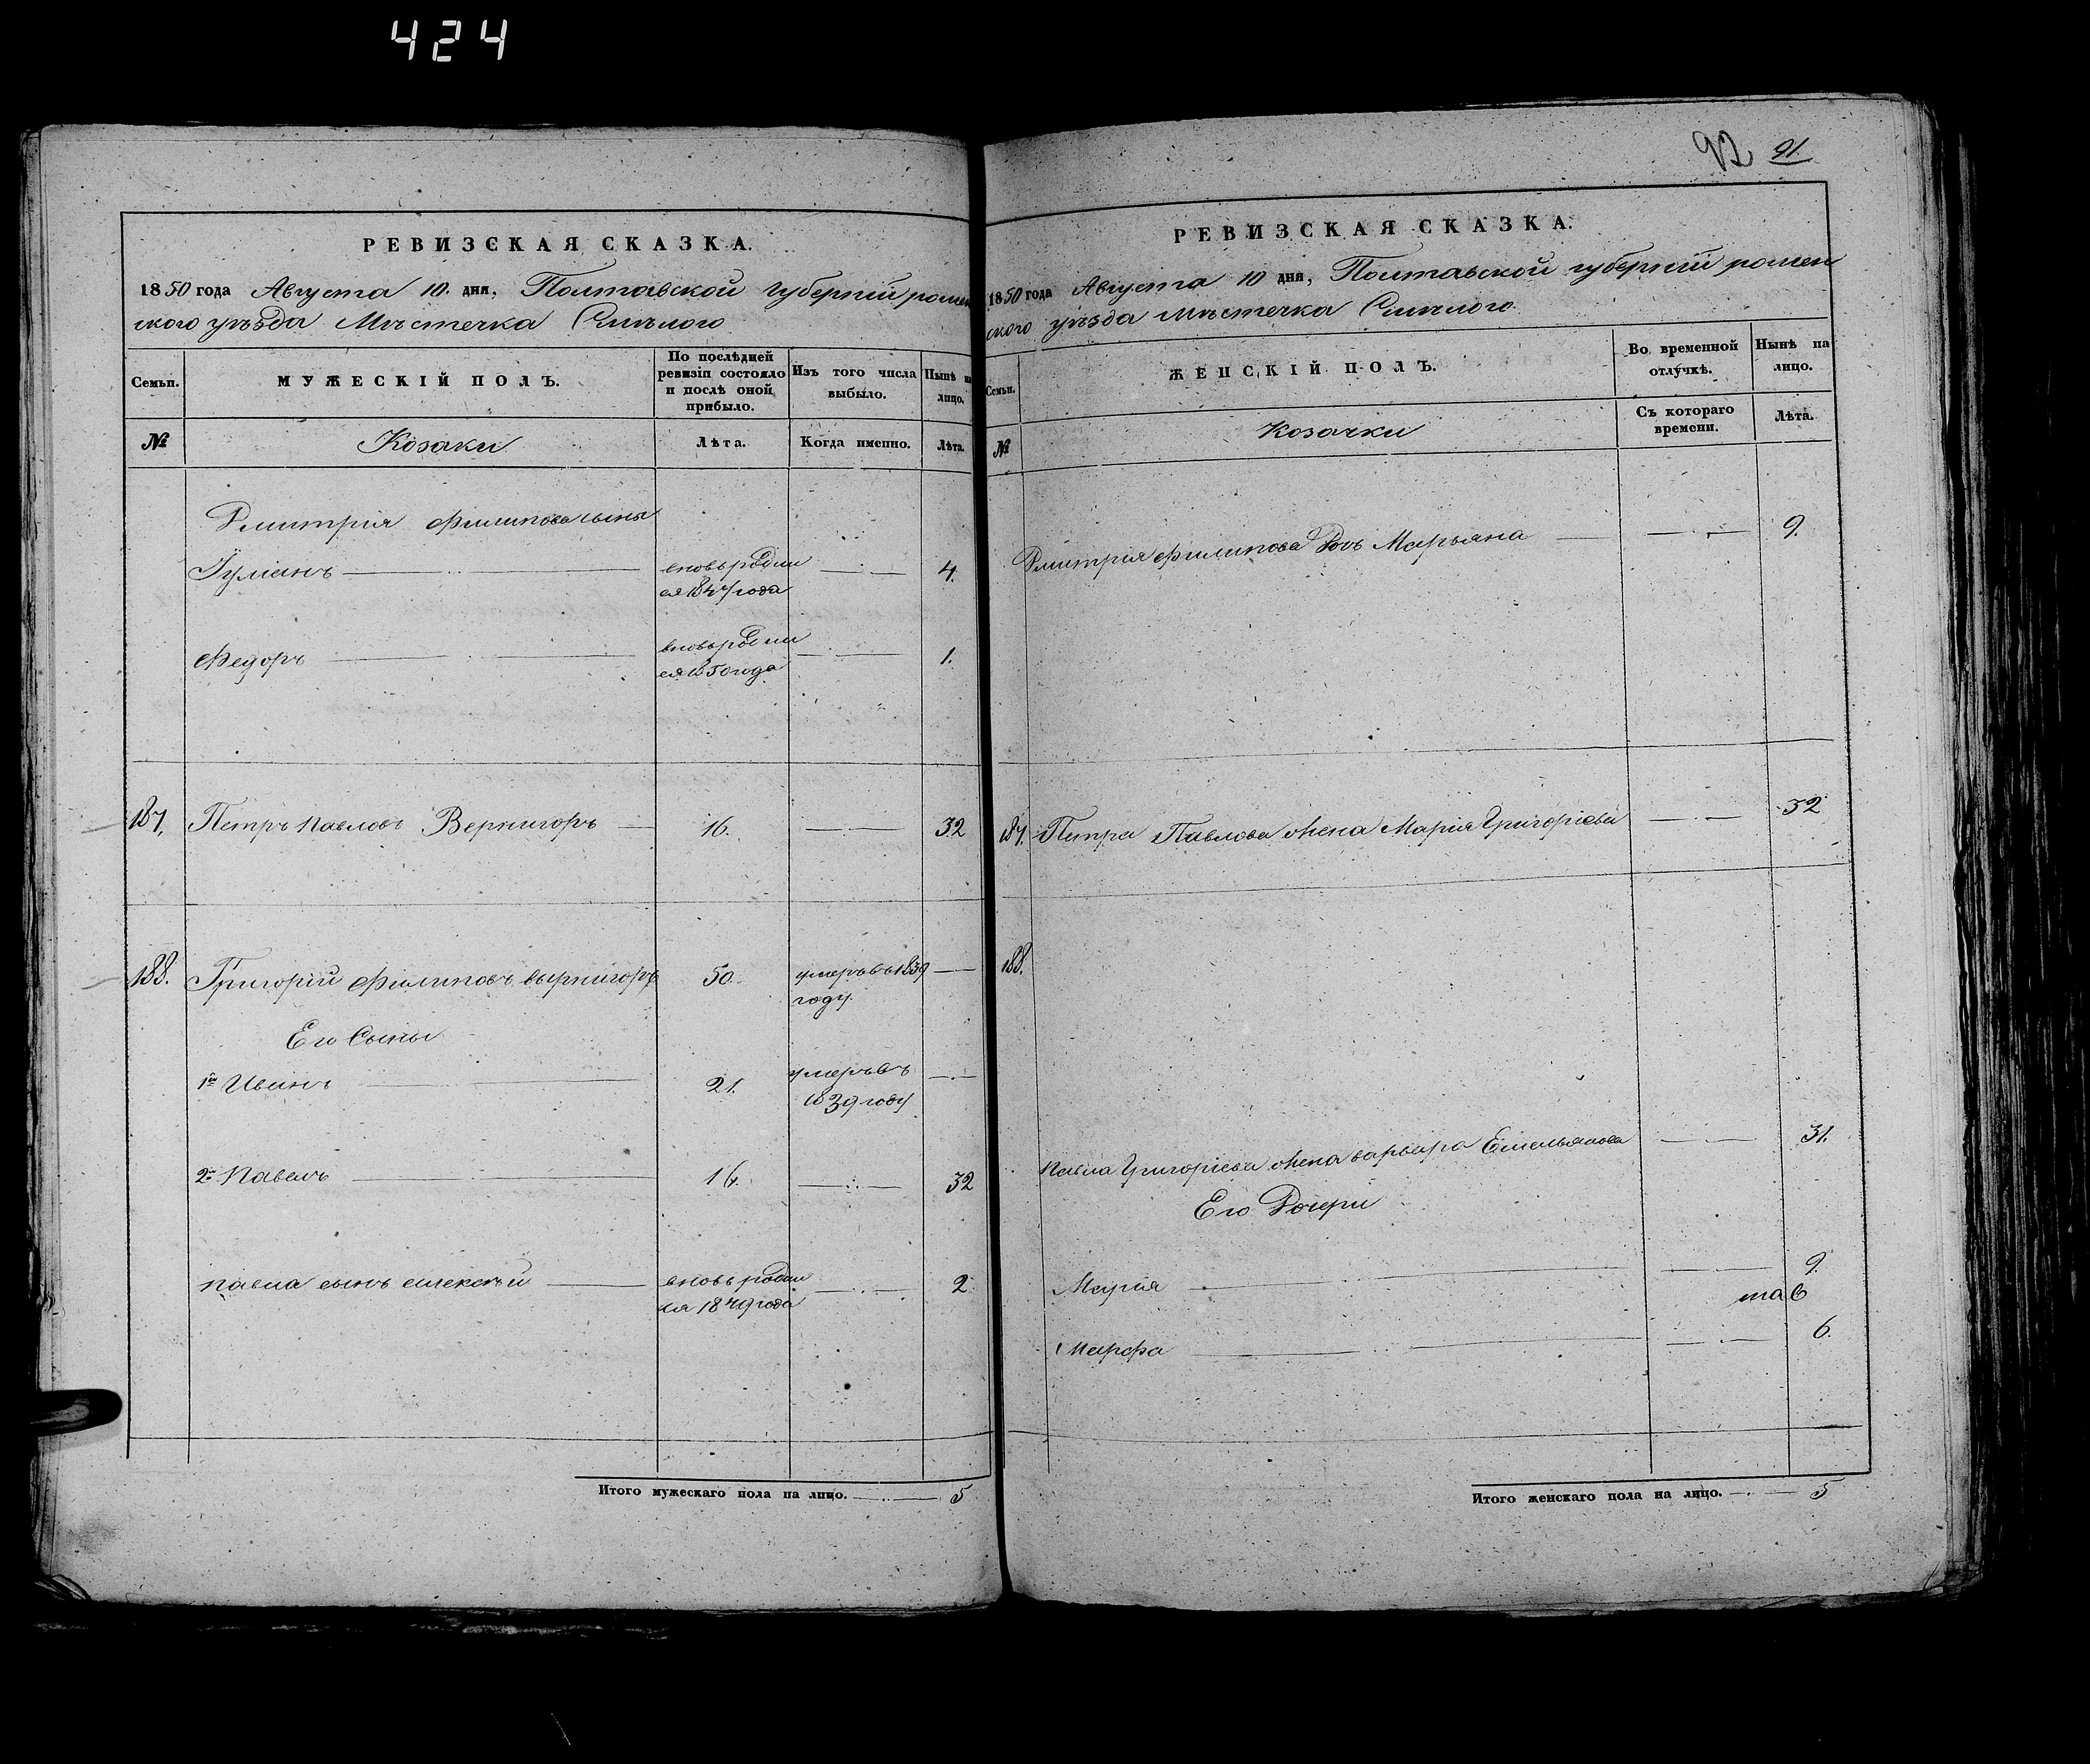 424
92 91.
РЕВИЗСКАЯ СКАЗКА.
1850 года Августа 10. дня, Полтавской губерніи ромен
ского уѣзда Мѣстечка Смѣлого
Семьи.
МУЖЕСКІЙ ПОЛЪ.
По послѣдней ревизіи состояло и послѣ оной прибыло.
Изъ того числа выбыло.
Нынѣ на лицо.
№
Козаки
Лѣта.
Когда именно.
Лѣта.
Дмитрія Филипова сыны
Іуліанъ вновь родил 4.
ся 1847 года
Федоръ вновь родил 1.
ся 1850 года
187. Петръ Павловъ Вернигоръ 16. 32
188. Григорій Филиповъ вернигоръ 50. умеръ въ 1839
году.
Его Сыны
1й Иванъ 21. умеръ въ
1839 году
2й Павелъ 16. 32
павла сынъ алексѣй вновь родил 2
ся 1849 года
Итого мужескаго пола на лицо. 5
РЕВИЗСКАЯ СКАЗКА.
1850 года Августа 10 дня, Полтавской губерніи ромен
ского уѣзда мѣстечка Смѣлого
Семьи.
ЖЕНСКІЙ ПОЛЪ.
Во временной отлучкѣ.
Нынѣ на лицо.
№
Козачки
Съ котораго времени.
Лѣта.
Дмитрія Филипова дочь Марьяна 9.
187. Петра Павлова жена Марія Григоріева 32
188.
Павла Григоріева жена варвара Емельянова 31.
Его Дочери
Марія 9.
Марфа 6.
Итого женскаго пола на лицо. 5